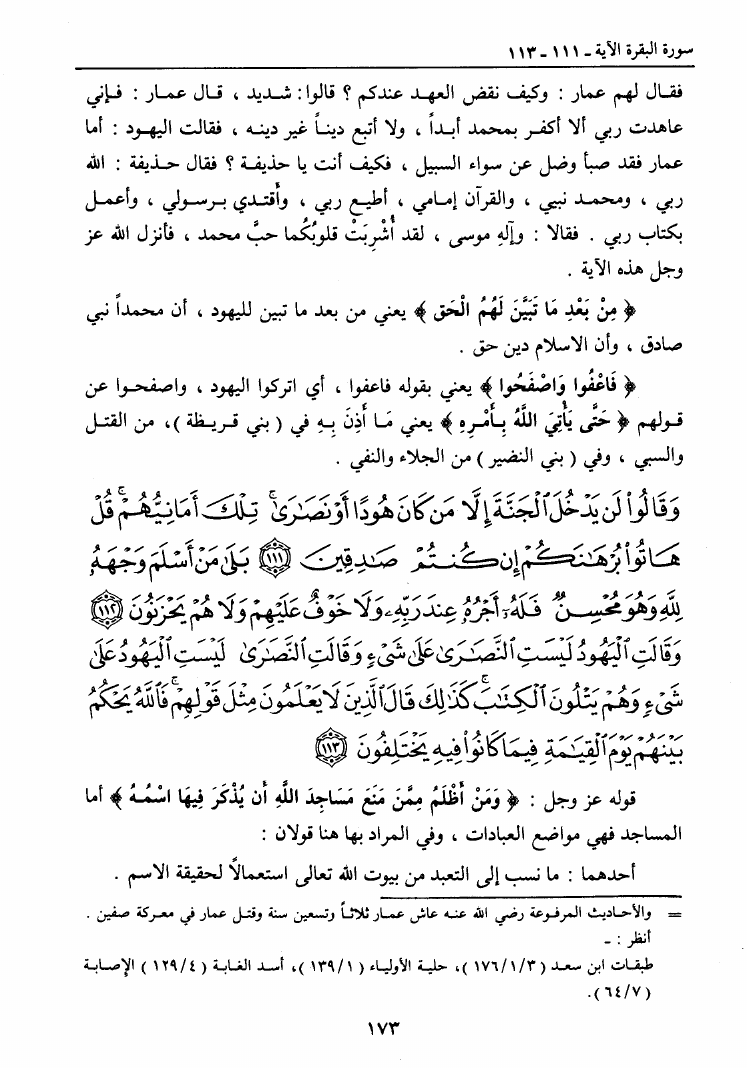 سورة البقرة الآية - ١١١ - ١١٣
فقال لهم عمار : وكيف نقض العهد عندكم ؟ قالوا : شديد ، قال عمار : فإني
عاهدت ربي ألا أكفر بمحمد أبداً ، ولا أتبع ديناً غير دينه ، فقالت اليهود : أما
عمار فقد صبأ وضل عن سواء السبيل ، فكيف أنت يا حذيفة ؟ فقال حذيفة : الله
ربي ، ومحمد نبيي ، والقرآن إمامي ، أطيع ربي ، وأقتدي برسولي ، وأعمل
بكتاب ربي . فقالا : وآلهِ موسى ، لقد أُشْرِبَتْ قلوبُكُما حبَّ محمد ، فأنزل الله عز
وجل هذه الآية .
﴿ مِنْ بَعْدِ مَا تَبَيَّنَ لَهُمُ الْحَق ﴾ يعني من بعد ما تبين لليهود ، أن محمداً نبي
صادق ، وأن الاسلام دين حق .
﴿ فَاعْفُوا وَاصْفَحُوا ﴾ يعني بقوله فاعفوا ، أي اتركوا اليهود ، واصفحوا عن
قولهم ﴿ حَتَّى يَأْتِيَ اللَّهُ بِأَمْرِهِ ﴾ يعني مَا أَذِنَ بِهِ في ( بني قريظة )، من القتل
والسبي ، وفي ( بني النضير ) من الجلاء والنفي .
وَقَالُوا۟ لَن يَدْخُلَ ٱلْجَنَّةَ إِلَّا مَن كَانَ هُودًا أَوْ نَصَٰرَىٰ ۗ تِلْكَ أَمَانِيُّهُمْ ۗ قُلْ
هَاتُوا۟ بُرْهَٰنَكُمْ إِن كُنتُمْ صَٰدِقِينَ ﴿١١١﴾ بَلَىٰ مَنْ أَسْلَمَ وَجْهَهُۥ
لِلَّهِ وَهُوَ مُحْسِنٌ فَلَهُۥٓ أَجْرُهُۥ عِندَ رَبِّهِۦ وَلَا خَوْفٌ عَلَيْهِمْ وَلَا هُمْ يَحْزَنُونَ ﴿١١٢﴾
وَقَالَتِ ٱلْيَهُودُ لَيْسَتِ ٱلنَّصَٰرَىٰ عَلَىٰ شَىْءٍ وَقَالَتِ ٱلنَّصَٰرَىٰ لَيْسَتِ ٱلْيَهُودُ عَلَىٰ
شَىْءٍ وَهُمْ يَتْلُونَ ٱلْكِتَٰبَ ۗ كَذَٰلِكَ قَالَ ٱلَّذِينَ لَا يَعْلَمُونَ مِثْلَ قَوْلِهِمْ ۚ فَٱللَّهُ يَحْكُمُ
بَيْنَهُمْ يَوْمَ ٱلْقِيَٰمَةِ فِيمَا كَانُوا۟ فِيهِ يَخْتَلِفُونَ ﴿١١٣﴾
قوله عز وجل : ﴿ وَمَنْ أَظْلَمُ مِمَّن مَنَعَ مَسَاجِدَ اللَّهِ أَن يُذْكَرَ فِيهَا اسْمُهُ ﴾ أما
المساجد فهي مواضع العبادات ، وفي المراد بها هنا قولان :
أحدهما : ما نسب إلى التعبد من بيوت الله تعالى استعمالاً لحقيقة الاسم .
= والأحاديث المرفوعة رضي الله عنه عاش عمار ثلاثاً وتسعين سنة وقتل عمار في معركة صفين .
أنظر : -
طبقات ابن سعد ( ١٧٦/١/٣ )، حلية الأولياء ( ١٣٩/١ )، أسد الغابة ( ١٢٩/٤ ) الإصابة
( ٦٤/٧ ).
١٧٣